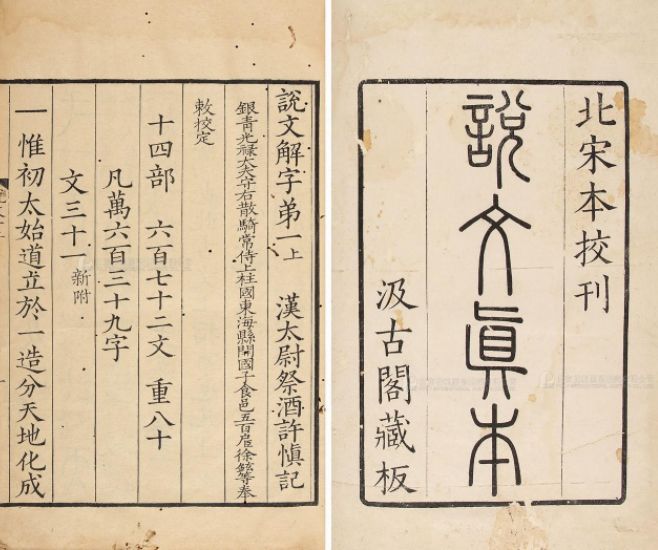 北宋本挍刊
說文眞本
汲古閣藏板
說文解字弟一上　漢太尉祭酒許愼記
銀青光祿大夫守右散騎常侍上柱國東海縣開國子食邑五百戶徐鉉等奉
敕校定
十四部　六百七十二文　重八十
凡萬六百三十九字
文三十一 新附
一 惟初太始道立於一造分天地化成